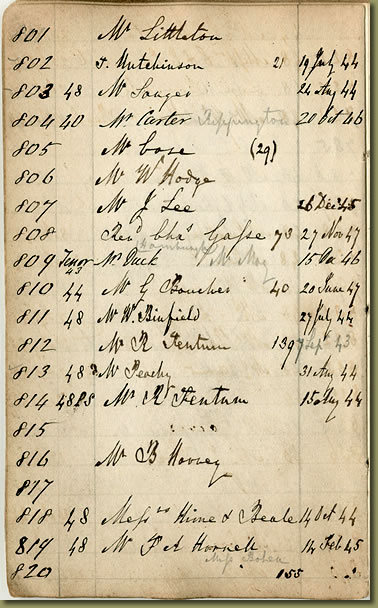 801 Mr Littleton
802 T. Hutchinson 21 19 July 44
803 48 Mr Sauger 24 Aug 44
804 40 Mr Carter Rippington 20 Oct 46
805 Mr Case (29)
806 Mr W Hodge
807 Mr J Lee 26 Decr 45
808 Revd Chas Gapse 73 27 Nov 47
809 Tenor 43 Mr Duck 15 46
810 44 Mr G Boucher 40 20 June 47
811 48 Mr W. Binfield 27 July 44
812 Mr R Fentum 139 7 Sept 43
813 48 Mr Peachy 31 Aug 44
814 48 Mr R Fentum 15 Aug 44
815
816 Mr B Hovsey
817
818 48 Messrs Hime & Beale 14 Oct 44
819 48 Mr F A Hornell 14 Feb 45
Miss
820 155